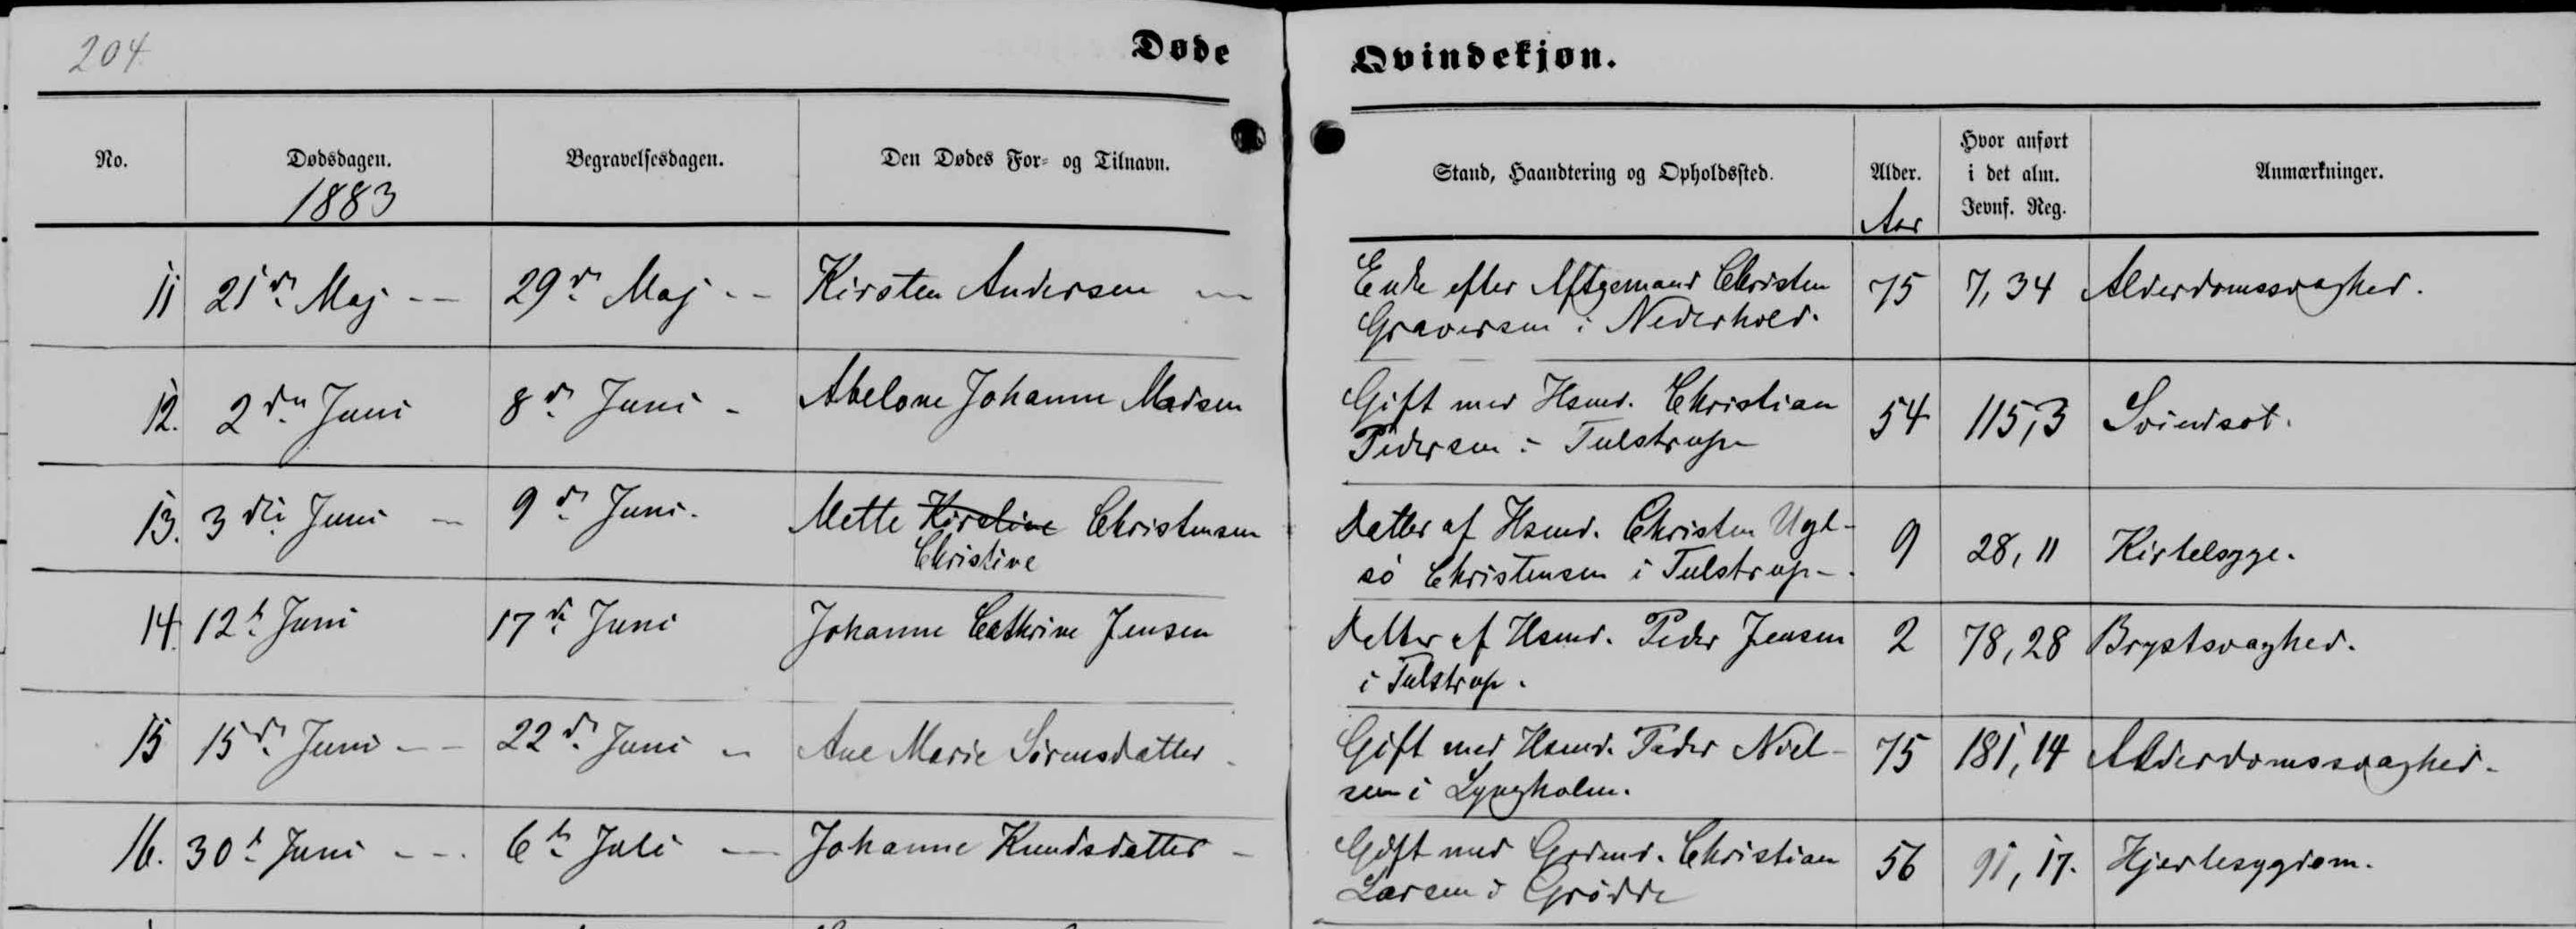 204
Døde Qvindekjøn.
No. Dødsdagen. Begravelsesdagen. Den Dødes For- og Tilnavn. Stand, Haandtering og Opholdssted. Alder. Hvor anført i det alm. Jevnf. Reg. Anmærkninger.
1883 Aar
11 21de Maj -- 29de Maj -- Kirsten Andersen — Enke efter Aftgsmand Christen 75 7,34 Alderdomssvaghed.
Graversen i Nederhold.
12. 2den Juni 8de Juni - Abelone Johanne Madsen Gift med Hsmd. Christian 54 115,3 Svindsot.
Pedersen i Tulstrup
13. 3die Juni - 9de Juni. Mette Kirstine Christensen Datter af Hsmd. Christen Ugl- 9 28,11 Kirtelsyge.
Christine sø Christensen i Tulstrup -
14. 12te Juni 17de Juni Johanne Cathrine Jensen Datter af Hsmd. Peder Jensen 2 78,28 Brystsvaghed.
i Tulstrup.
15 15de Juni -- 22de Juni - Ane Marie Sørensdatter - Gift med Hsmd. Peder Niel- 75 181,14 Alderdomssvaghed.
sen i Lyngholm.
16. 30te Juni --. 6te Juli — Johanne Knudsdatter - Gift med Grdmd. Christian 56 91,17. Hjertesygdom.
Larsen i Grødde